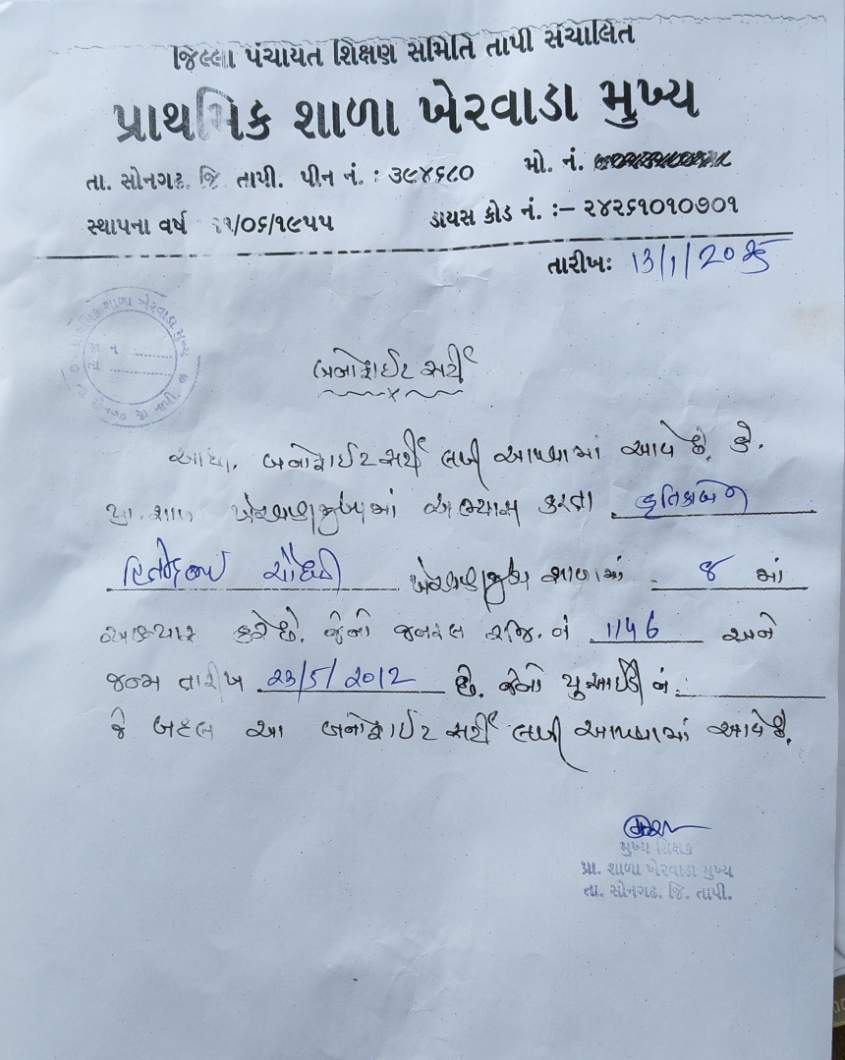 જિલ્લા પંચાયત શિક્ષણ સમિતિ તાપી સંચાલિત
પ્રાથમિક શાળા ખેરવાડા મુખ્ય
તા. સોનગઢ. જિ. તાપી. પીન નં. : ૩૯૪૬૮૦ મો. નં.
સ્થાપના વર્ષ ૧/૦૬/૧૯૫૫ ડાયસ કોડ નં. :– ૨૪૨૬૧૦૧૦૭૦૧
તારીખઃ 13/1/2025
બનોફાઈટ સર્ટી
આથી, બનોફાઈટ સર્ટી લખી આપવામાં આવે છે. કે.
પ્રા. શાળા ખેરવાડા મુખ્યમાં અભ્યાસ કરતા કૃતિકાબેન
ચૌધરી ખેરવાડા મુખ્ય શાળામાં ૪ માં
અભ્યાસ કરે છે. જેનો જનરલ રજિ. નં 1146 અને
જન્મ તારીખ 23/5/2012 છે. જેનો યુઆઈડી નં.
જે બદલ આ બનોફાઈટ સર્ટી લખી આપવામાં આવે છે.
મુખ્ય શિક્ષક
પ્રા. શાળા ખેરવાડા મુખ્ય
તા. સોનગઢ. જિ. તાપી.